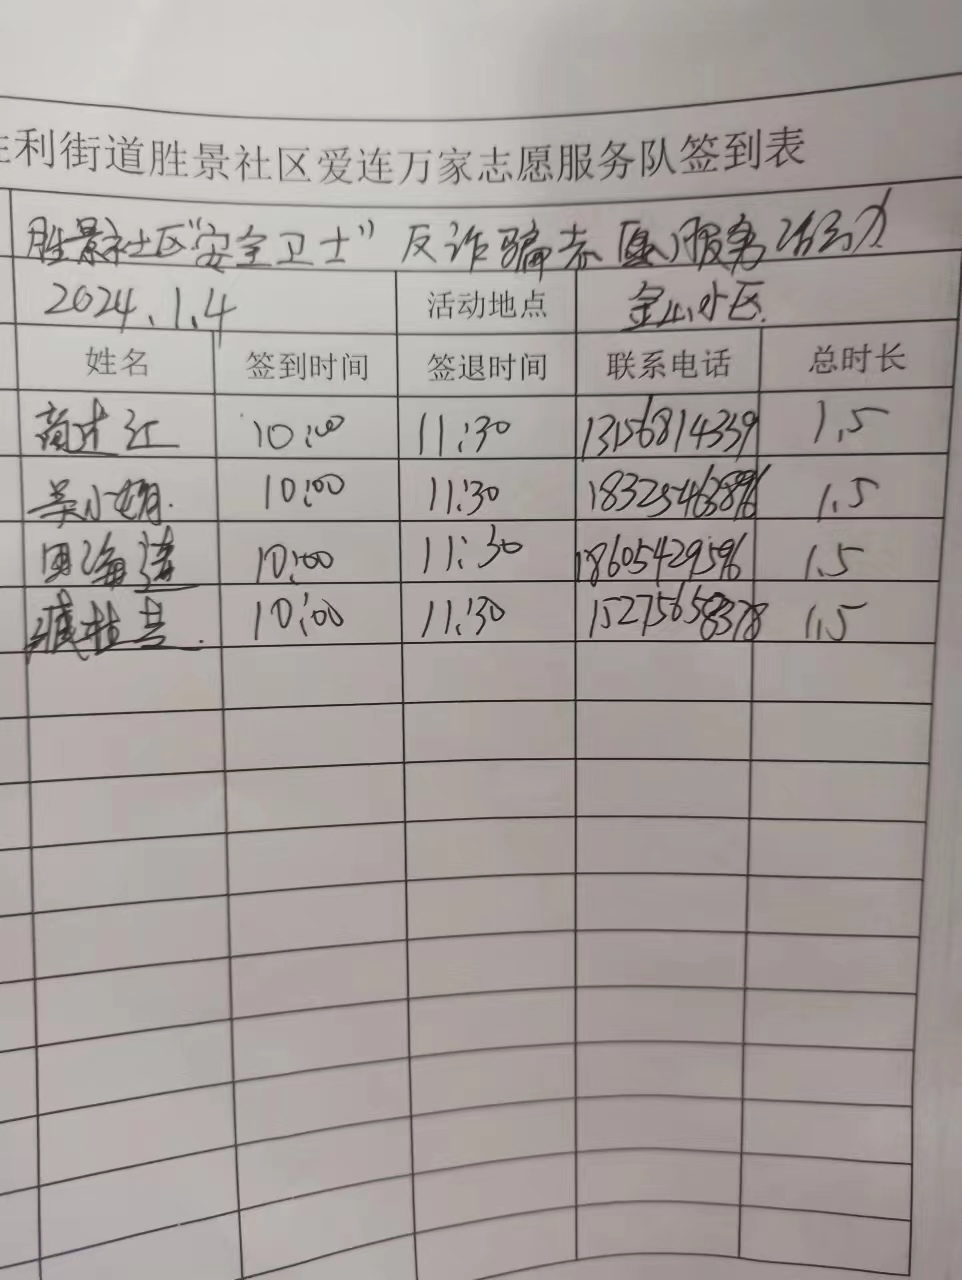 利街道胜景社区爱连万家志愿服务队签到表
胜景社区"安全卫士"反诈骗志愿服务活动
2024.1.4 活动地点 金山小区.
姓名 签到时间 签退时间 联系电话 总时长
江 10:00 11:30 13156814339 1.5
吴小娟. 10:00 11:30 18325463896 1.5
周海涛 10:00 11:30 18605429596 1.5
臧桂兰. 10:00 11:30 15275658378 1.5